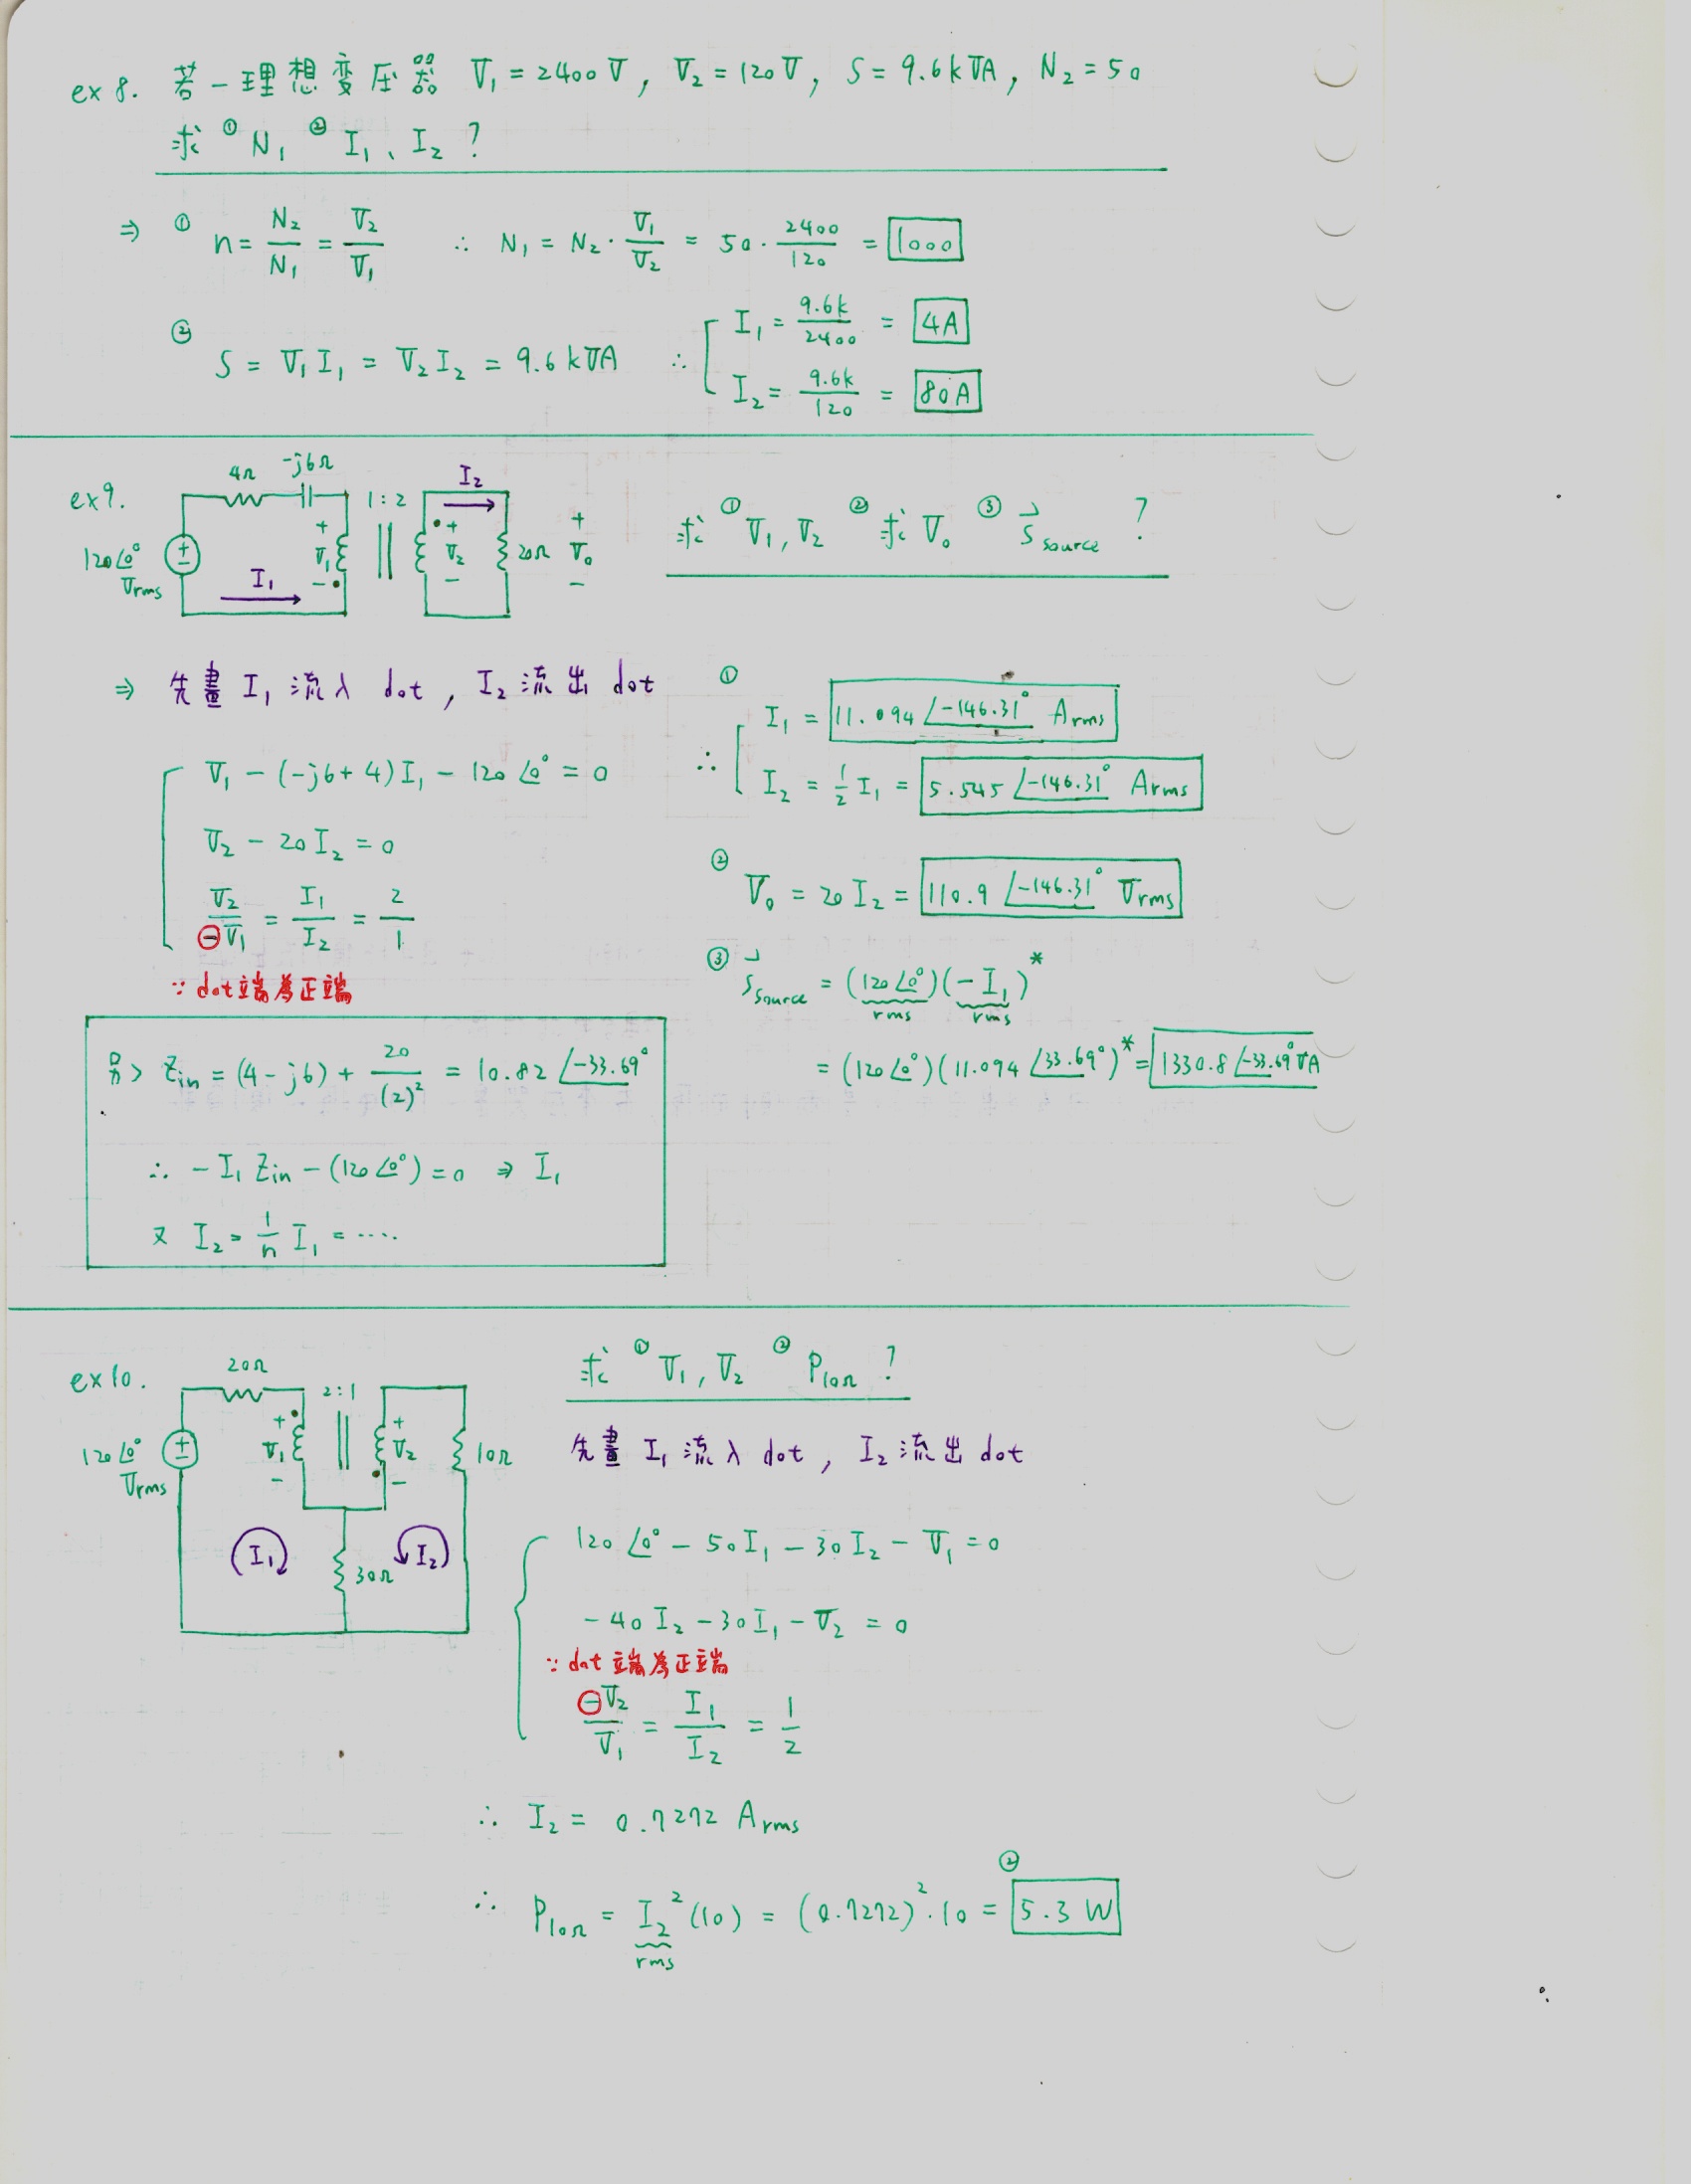 ex 8. 若一理想变压器 V₁ = 2400 V, V₂ = 120 V, S = 9.6 kVA, N₂ = 50
求 ① N₁ ② I₁、I₂ ?
⇒ ① n = N₂/N₁ = V₂/V₁ ∴ N₁ = N₂ · V₁/V₂ = 50 · 2400/120 = 1000
② S = V₁I₁ = V₂I₂ = 9.6 kVA ∴ I₁ = 9.6k/2400 = 4A
I₂ = 9.6k/120 = 80A
ex 9.
4Ω -j6Ω 1:2 I₂
120∠0° Vrms + V₁ - + V₂ - 20Ω + V₀ -
I₁
求 ① V₁, V₂ ② 求 V₀ ③ S⃗source ?
⇒ 先畫 I₁ 流入 dot, I₂ 流出 dot
V₁ - (-j6+4)I₁ - 120∠0° = 0
V₂ - 20I₂ = 0
V₂/⊖V₁ = I₁/I₂ = 2/1
∵ dot端為正端
∴ ① I₁ = 11.094∠-146.31° Arms
I₂ = ½ I₁ = 5.545∠-146.31° Arms
② V₀ = 20 I₂ = 110.9∠-146.31° Vrms
③ S⃗source = (120∠0°)(-I₁)*
rms rms
= (120∠0°)(11.094∠33.69°)* = 1330.8∠-33.69° VA
另> Zin = (4-j6) + 20/(2)² = 10.82∠-33.69°
∴ -I₁ Zin - (120∠0°) = 0 ⇒ I₁
又 I₂ = 1/n I₁ = ....
ex 10.
20Ω 2:1
120∠0° Vrms + V₁ - + V₂ - 10Ω
I₁ 30Ω I₂
求 ① V₁, V₂ ② P10Ω ?
先畫 I₁ 流入 dot, I₂ 流出 dot
120∠0° - 50I₁ - 30I₂ - V₁ = 0
-40I₂ - 30I₁ - V₂ = 0
∵ dot端為正端
⊖V₂/V₁ = I₁/I₂ = 1/2
∴ I₂ = 0.7272 Arms
∴ P10Ω = I₂²(10) = (0.7272)²·10 = ② 5.3 W
rms